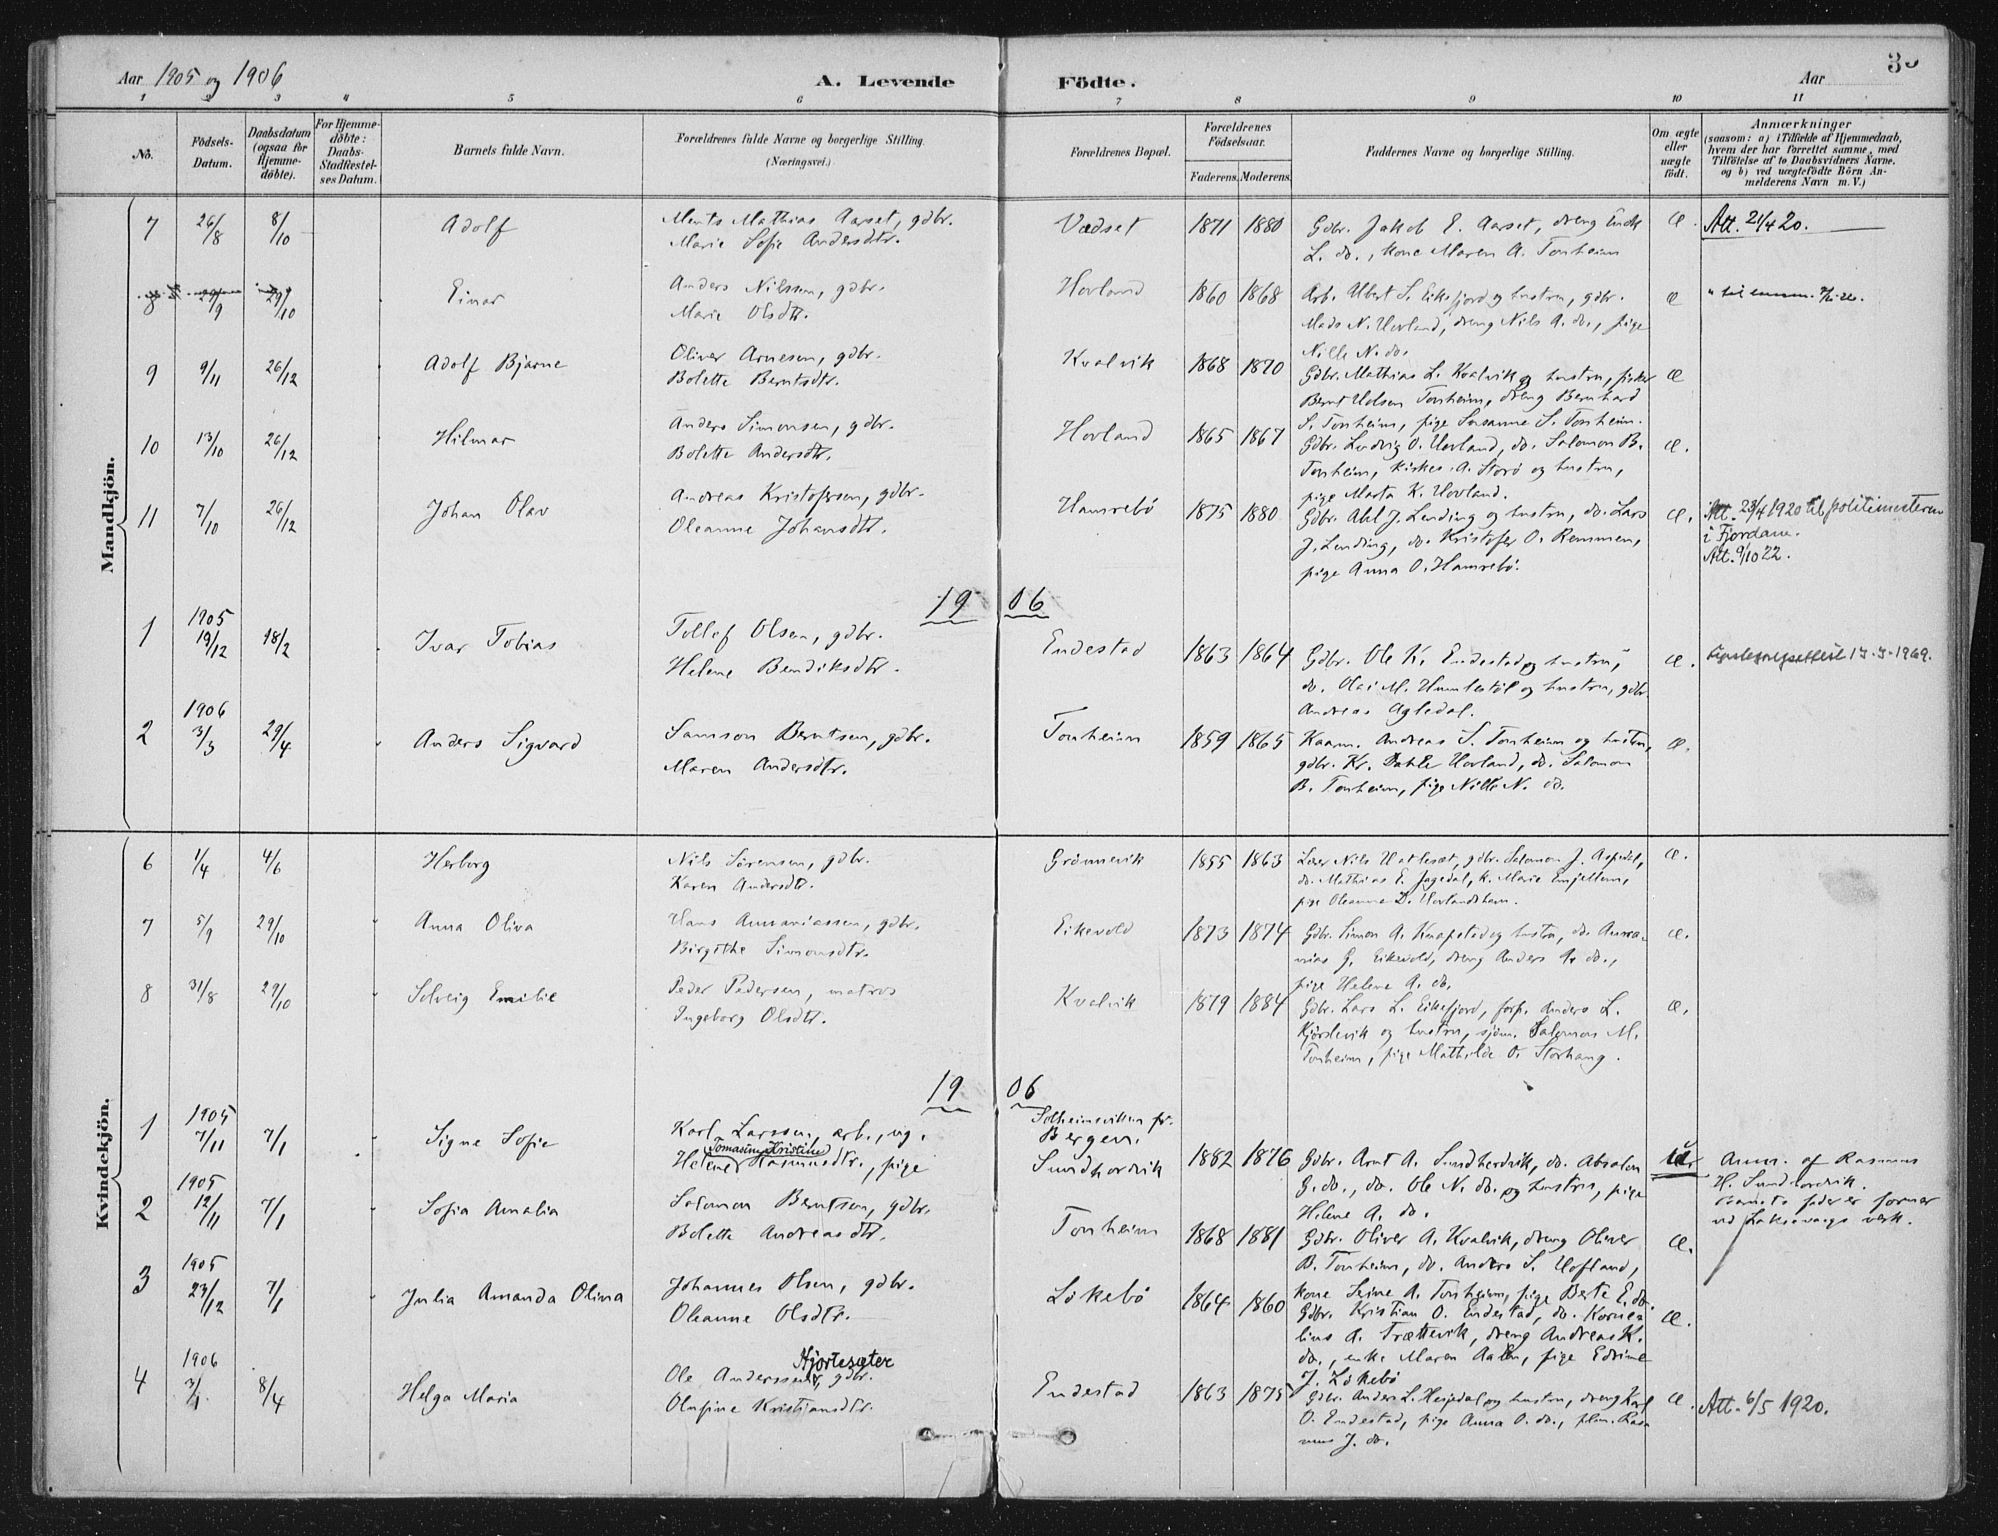 Aar 1905 og 1906
A. Levende Födte.
Aar
3
1 2 3 4 5 6 7 8 9 10 11
No.
Födsels-Datum.
Daabsdatum (ogsaa för Hjemme-döbte).
For Hjemme-döbte: Daabs-Stadfæstel-ses Datum.
Barnets fulde Navn.
Forældrenes fulde Navne og borgerlige Stilling. (Næringsvei.)
Forældrenes Bopæl.
Forældrenes Födselsaar.
Faderens. Moderens.
Faddernes Navne og borgerlige Stilling.
Om ægte eller uægte födt.
Anmærkninger
(saasom: a) i Tilfælde af Hjemmedaab, hvem der har forrettet samme, med Tilföielse af to Daabsvidners Navne, og b) ved uægtefödte Börn An-melderens Navn m. V.)
Mandkjön.
7 26/8 8/10 Adolf
Ments Mathias Aarset, gdbr.
Marie Sofie Andersdtr.
Vædset 1871 1880
Gdbr. Jakob E. Aarset, dreng
L. do., kone Maren A. Tonheim
Æ. Att. 21/4 20.
8 29/9 29/10 Einar
Anders Nilssen, gdbr.
Marie Olsdtr.
Hovland 1860 1868
Arb. Albert S. Eikefjord og hustru, gdbr.
Mads N. Hovland, dreng Nils A. do., pige
Nille N. do.
Æ
9 9/11 26/12 Adolf Bjarne
Oliver Arnesen, gdbr.
Bolette Berntsdtr.
Kvalvik 1868 1870
Gdbr. Mathias L. Kvalvik og hustru, fisker
Bernt Tonheim, dreng Bernhard
S. Tonheim, pige Susanne S. Tonheim.
Æ
10 13/10 26/12 Hilmar
Anders Simonsen, gdbr.
Bolette Andersdtr.
Hovland 1865 1867
Gdbr. Ludvig O. Hovland, do. Salomon B.
Tonheim, kirkes. A. Storö og hustru,
pige Marta K. Hovland.
Æ.
11 7/10 26/12 Johan Olav
Andreas Kristofersen, gdbr.
Oleanne Johansdtr.
Hamrebö 1875 1880
Gdbr. Abl J. Lending og hustru, do. Lars
J. Lending, do. Kristofer O. Remmen,
pige Anna O. Hamrebö.
Æ. Att. 28/4 1920 til politimesteren
i Fjordane.
Att. 9/10 22.
1906
1 1905 19/12 18/2 Ivar Tobias
Tollef Olsen, gdbr.
Helene Bendiksdtr.
Endestad 1863 1864
Gdbr. Ole K. Endestad og hustru,
do. Olai M. Humlestöl og hustru, gdbr.
Andreas Agledal.
Æ. 1969.
2 1906 3/3 29/4 Anders Sigvard
Samson Berntsen, gdbr.
Maren Andersdtr.
Tonheim 1859 1865
Kaarm. Andreas S. Tonheim og hustru,
gdbr. Kr. Dahle Hovland, do. Salomon
B. Tonheim, pige Nille N. do.
Æ.
Kvindekjön.
6 1/4 4/6 Herborg
Nils Sörensen, gdbr.
Karen Andersdtr.
Grönnevik 1855 1863
Lærer Nils Hatlesæt, gdbr. Salomon J. Aspedal,
do. Mathias E. Jagedal, k. Marie Emjellem,
pige Oleanne D. Hovlandshem.
Æ.
7 5/9 29/10 Anna Oliva
Hans Annaniassen, gdbr.
Birgithe Simonsdtr.
Eikevold 1873 1874
Gdbr. Simon A. Knapstad og hustru, do. Anna-
nias G. Eikevold, dreng Anders A. do.,
pige Helene A. do.
Æ.
8 31/8 29/10 Solveig Emilie
Peder Pedersen, matros
Ingeborg Olsdtr.
Kvalvik 1879 1884
Gdbr. Lars L. Eikefjord, forp. Anders L.
Kjördevik og hustru, sjöm. Salomon M.
Tonheim, pige Mathilde O. Storhaug.
Æ.
1906
1 1905 7/11 7/1 Signe Sofie
Karl Larssen, arb., ug.
Tomasine Kristine
Helene Rasmusdtr., pige
Solheimsviken pr.
Bergen.
Sundhordvik 1882 1876
Gdbr. Arnt A. Sundhordvik, do. Absalon
G. do., do. Ole N. do. og hustru, pige
Helene A. do.
Anm. af Rasmus
H. Sundhordvik.
Barnets fader er former
ved Laksevaags verk.
2 1905 12/11 7/1 Sofia Amalia
Salomon Berntsen, gdbr.
Bolette Andreasdtr.
Tonheim 1868 1881
Gdbr. Oliver A. Kvalvik, dreng Oliver
B. Tonheim, do. Anders S. Hofland,
kone Seine A. Tonheim, pige Berte E. do.
Æ.
3 1905 23/12 7/1 Julia Amanda Olina
Johannes Olsen, gdbr.
Oleanne Olsdtr.
Lökebö 1864 1860
Gdbr. Kristian O. Endestad, do. Korne-
lius A. Trættevik, dreng Andreas K.
do., enke Maren Aalen, pige Edvine
J. Lökebö
Æ.
4 1906 3/1 8/4 Helga Maria
Hjortesæter
Ole Anderssen, gdbr.
Olufine Kristiansdtr.
Endestad 1863 1875
Gdbr. Anders L. Hespedal og hustru, dreng Karl
O. Endestad, pige Anna O. do., plm. Ras-
mus J. do.
Æ. Att. 6/5 1920.